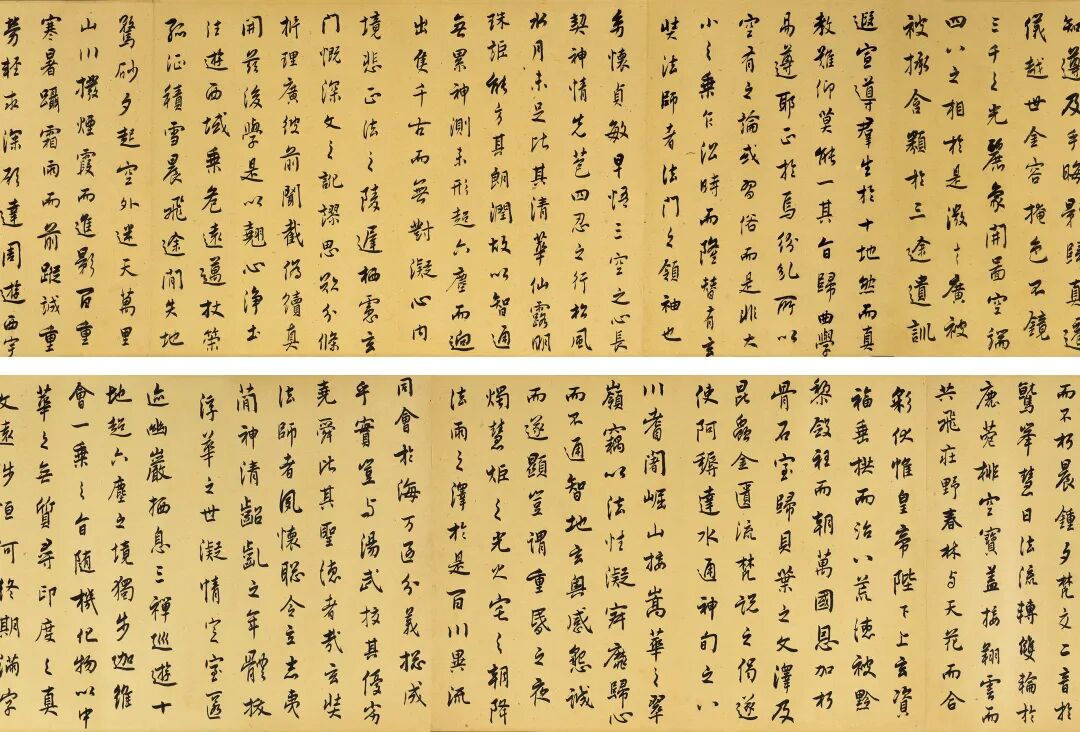 知遵及乎晦影歸真遷
儀越世金容掩色不鏡
三千之光麗象開圖空端
四八之相於是微言廣被
被拯含類於三途遺訓
遐宣導群生於十地然而真
教難仰莫能一其旨歸曲學
易遵耶正於焉紛糺所以
空有之論或習俗而是非大
小之乘乍沿時而隆替有玄
奘法師者法門之領袖也
幼懷貞敏早悟三空之心長
契神情先苞四忍之行松風
水月未足比其清華仙露明
珠詎能方其朗潤故以智通
無累神測未形超六塵而迥
出隻千古而無對凝心內
境悲正法之陵遲栖慮玄
門慨深文之訛謬思欲分條
析理廣彼前聞截偽續真
開茲後學是以翹心淨土
法遊西域乘危遠邁杖策
孤征積雪晨飛途間失地
驚砂夕起空外迷天萬里
山川撥煙霞而進影百重
寒暑躡霜雨而前蹤誠重
勞輕求深願達周遊西宇
而不朽晨鍾夕梵交二音於
鷲峯慧日法流轉雙輪於
鹿菀排空寶蓋接翔雲而
共飛莊野春林与天花而合
彩伏惟皇帝陛下上玄資
福垂拱而治八荒德被黔
黎斂衽而朝萬國恩加朽
骨石室歸貝葉之文澤及
昆蟲金匱流梵說之偈遂
使阿耨達水通神旬之八
川耆闍崛山接嵩華之翠
嶺竊以法性凝寂靡歸心
而不通智地玄奧感懇誠
而遂顯豈謂重昏之夜
燭慧炬之光火宅之朝降
法雨之澤於是百川異流
同會於海万區分義揔成
乎實豈与湯武校其優劣
堯舜比其聖德者哉玄奘
法師者夙懷聰令立志夷
簡神清齠齔之年體拔
浮華之世凝情定室匿
迹幽巖栖息三禪巡遊十
地超六塵之境獨步迦維
會一乘之旨隨機化物以中
華之無質尋印度之真
文遠步恒河終期滿字